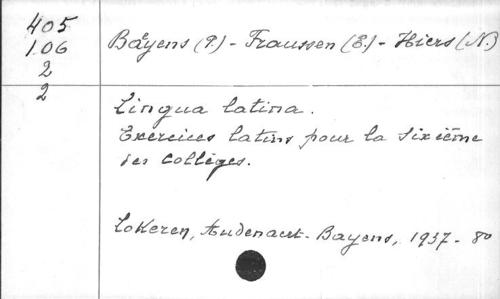 405
106
2
2
Baeyens (P.) - Fraussen (E.) - Hiers (N.)
Lingua latina.
Exercices latins pour la sixième
des collèges.
Lokeren, Audenaert-Bayens, 1937 - 8o